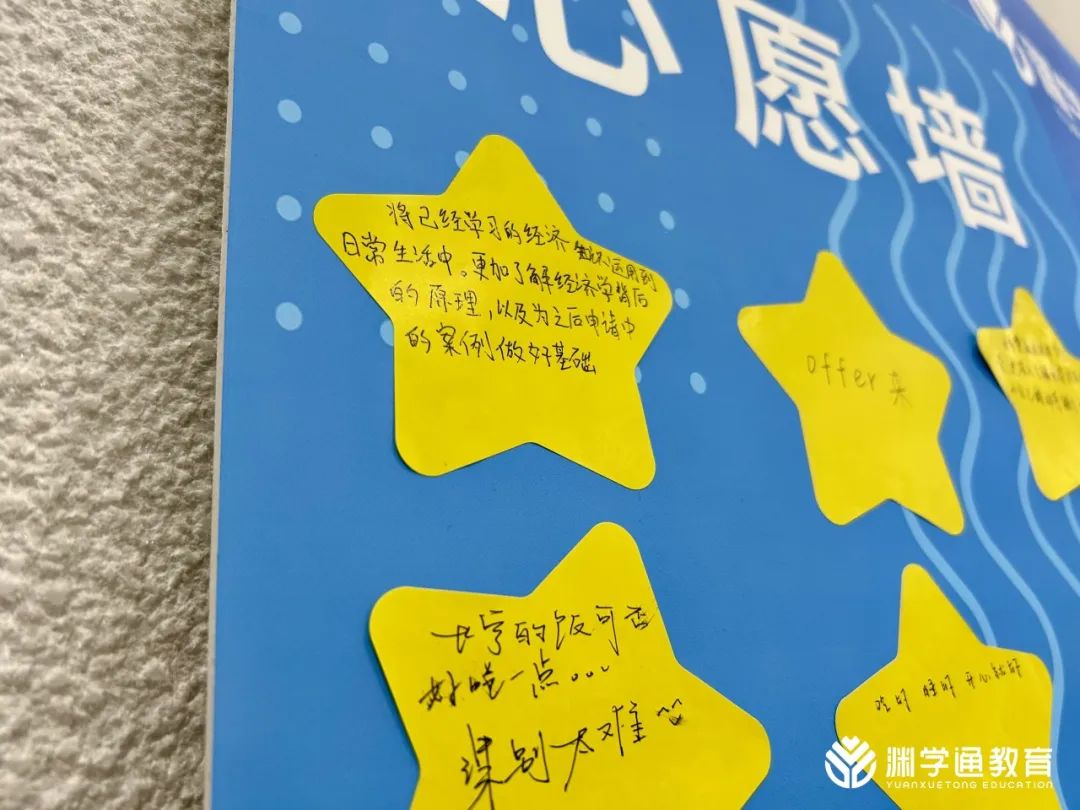 心愿墙
将已经学习的经济知识运用到
日常生活中。更加了解经济学背后
的原理，以及为之后申请中
的案例做好基础
offer 来
的饭可否
好吃一点...
课别太难
吃好 睡好 开心就好
渊学通教育
YUANXUETONG EDUCATION